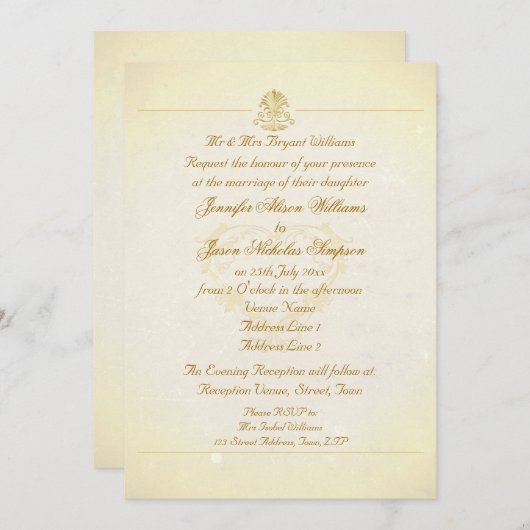 Mr & Mrs Bryant Williams
Request the honour of your presence
at the marriage of their daughter
Jennifer Alison Williams
to
Jason Nicholas Simpson
on 25th July 20xx
from 2 O'clock in the afternoon
Venue Name
Address Line 1
Address Line 2
An Evening Reception will follow at:
Reception Venue, Street, Town
Please RSVP to:
Mrs Isobel Williams
123 Street Address, Town, ZIP